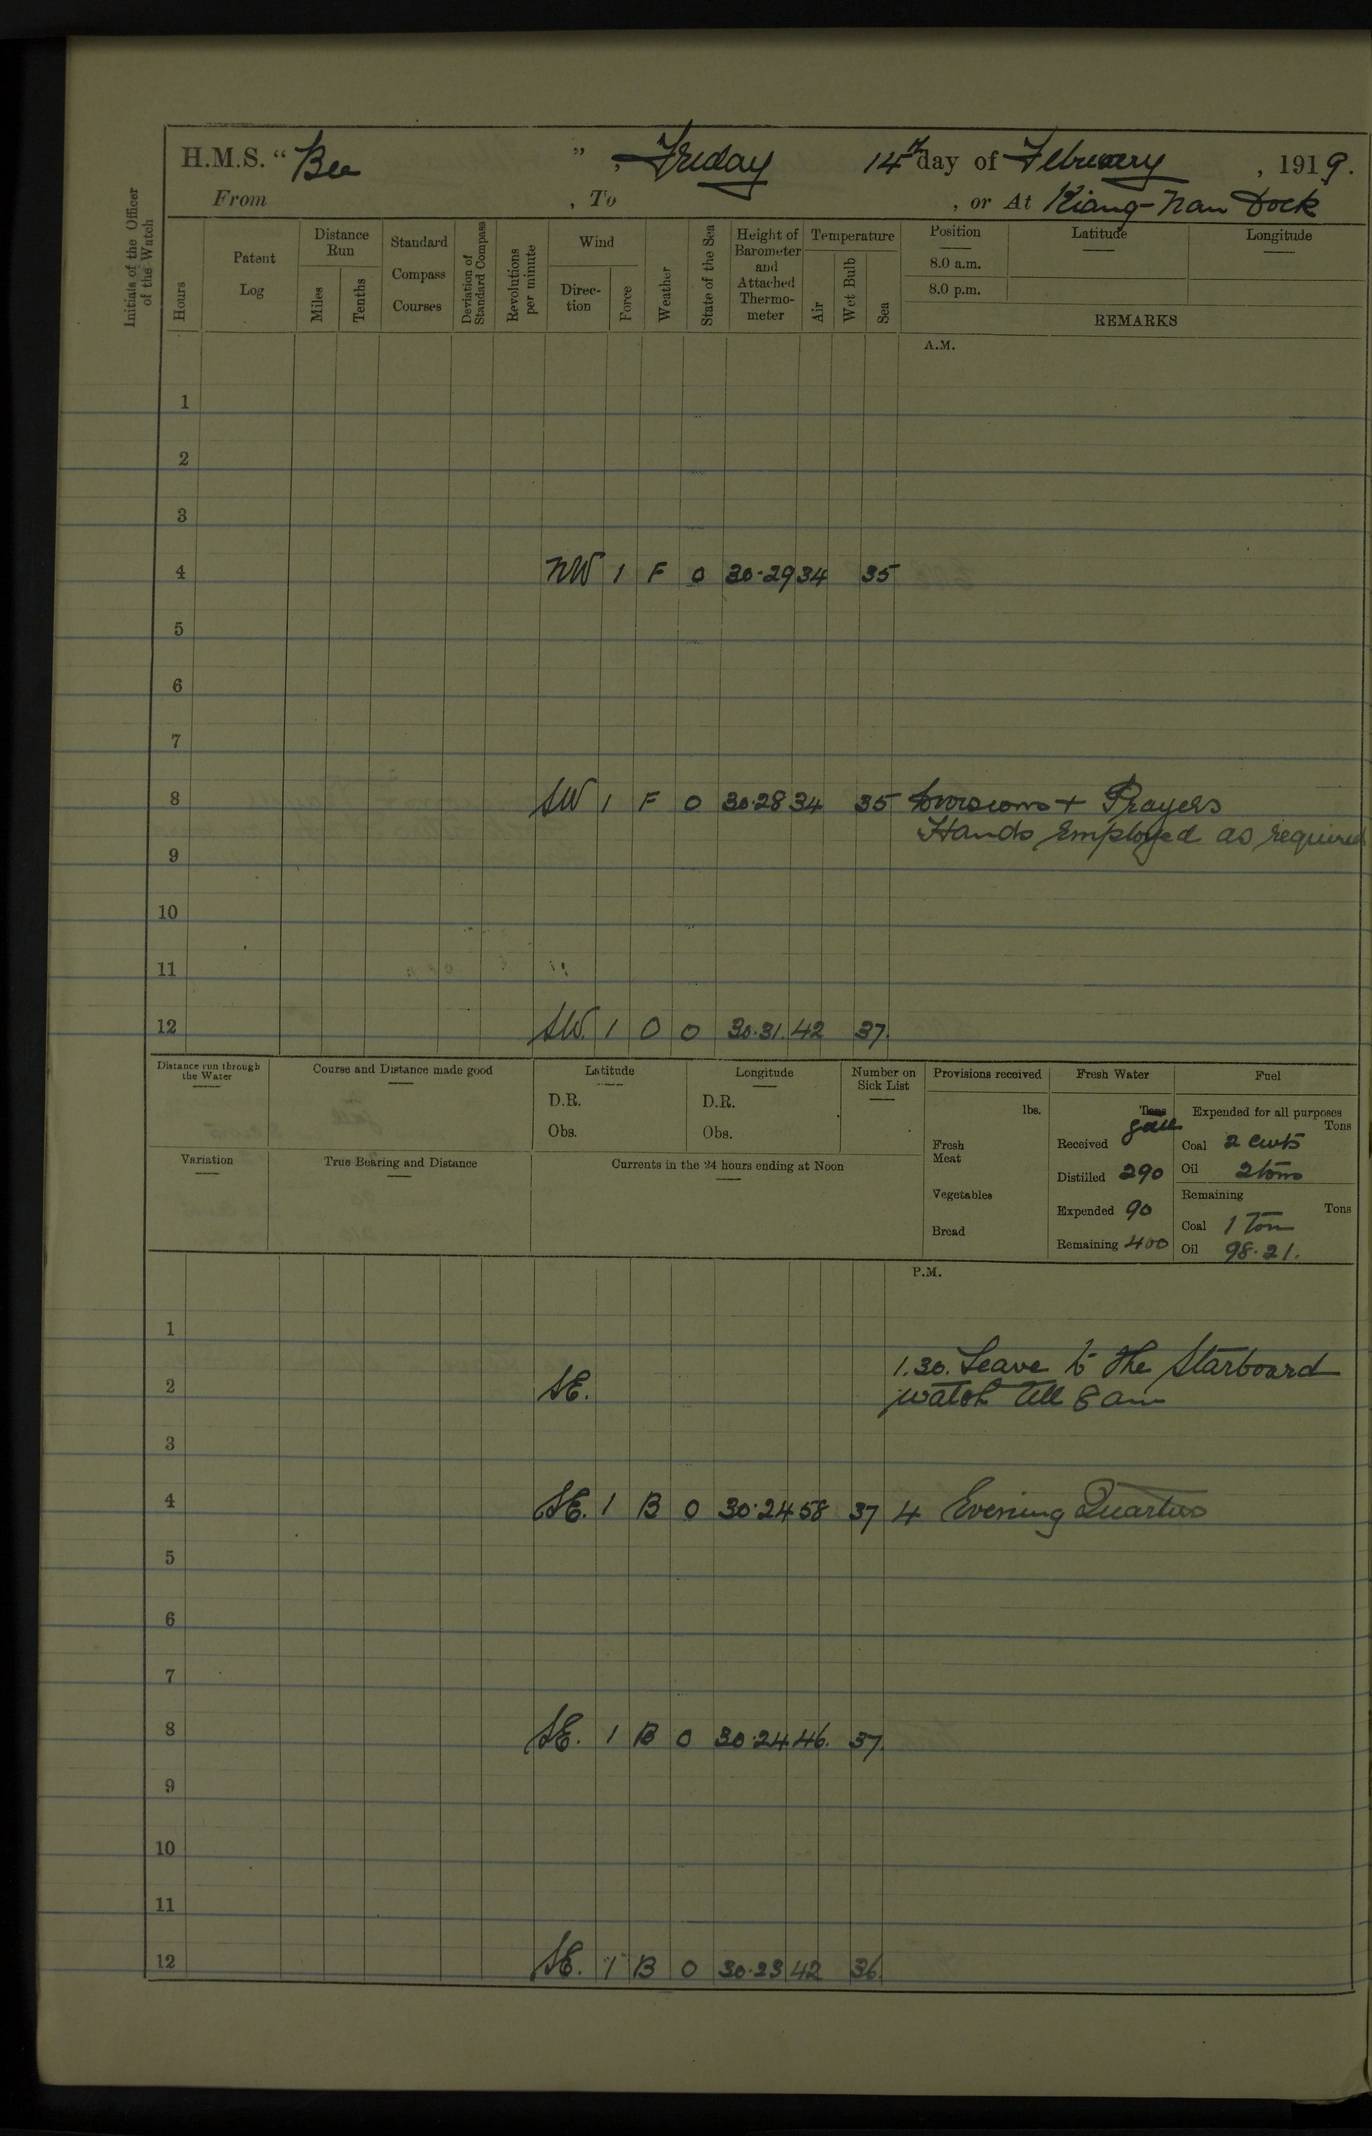 H.M.S. “ Bee ” , Friday 14th day of February , 1919.
From , To , or At Kiang-Nan Dock
Initials of the Officer of the Watch
Hours
Patent Log
Distance Run
Miles
Tenths
Standard Compass Courses
Deviation of Standard Compass
Revolutions per minute
Wind
Direc-tion
Force
Weather
State of the Sea
Height of Barometer and Attached Thermo-meter
Temperature
Air
Wet Bulb
Sea
Position
8.0 a.m.
8.0 p.m.
Latitude
Longitude
REMARKS
A.M.
1
2
3
4 NW 1 F 0 30.29 34 35
5
6
7
8 SW 1 F 0 30.28 34 35 Divisions + Prayers
Hands Employed as required
9
10
11
12 SW. 1 O 0 30.31. 42 37.
Distance run through the Water
Course and Distance made good
Latitude
D.R.
Obs.
Longitude
D.R.
Obs.
Number on Sick List
Variation
True Bearing and Distance
Currents in the 24 hours ending at Noon
Provisions received
lbs.
Fresh Meat
Vegetables
Bread
Fresh Water
Tons
Galls
Received
Distilled 290
Expended 90
Remaining 400
Fuel
Expended for all purposes
Tons
Coal 2 cwts
Oil 2 tons
Remaining
Tons
Coal 1 Ton
Oil 98.21.
P.M.
1
1.30. Leave to the Starboard
2 SE. watch till 8 am
3
4 SE. 1 B 0 30.24 58 37 4 Evening Quarters
5
6
7
8 SE. 1 B 0 30.24 46. 37.
9
10
11
12 SE. 1 B 0 30.23 42 36.